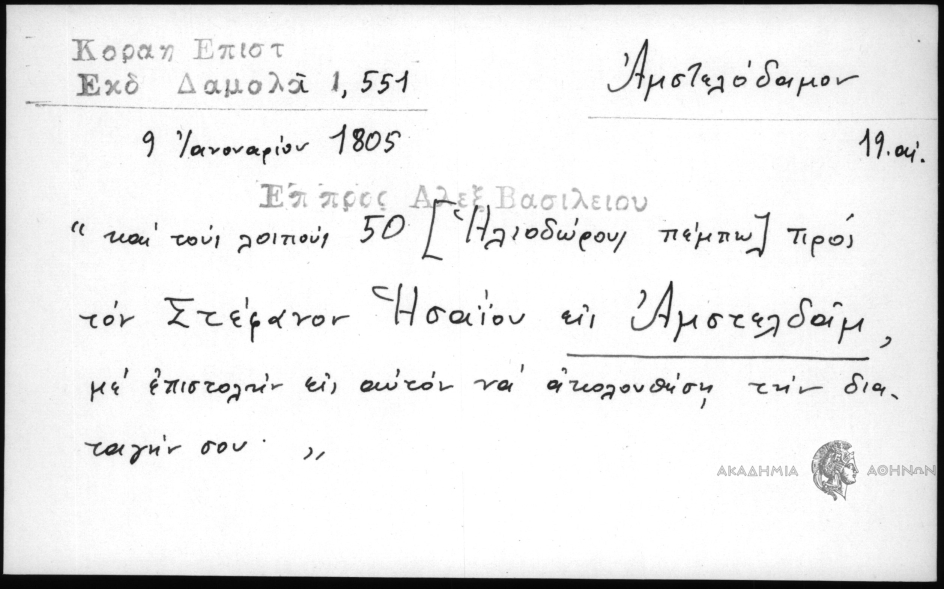 Κοραη Επιστ
Εκδ Δαμαλᾶ 1, 551
Ἀμστελόδαμον
9 Ἰανουαρίου 1805
19. αἰ.
Επ προς Αλεξ Βασιλειου
“ καὶ τοὺς λοιποὺς 50 [Ἡλιοδώρους πέμπω] πρὸς
τὸν Στέφανον Ἡσαΐου εἰς Ἀμστελδὰμ,
μὲ ἐπιστολὴν εἰς αὐτὸν νὰ ἀκολουθήσῃ τὴν δια-
ταγήν σου· „
ΑΚΑΔΗΜΙΑ ΑΘΗΝΩΝ